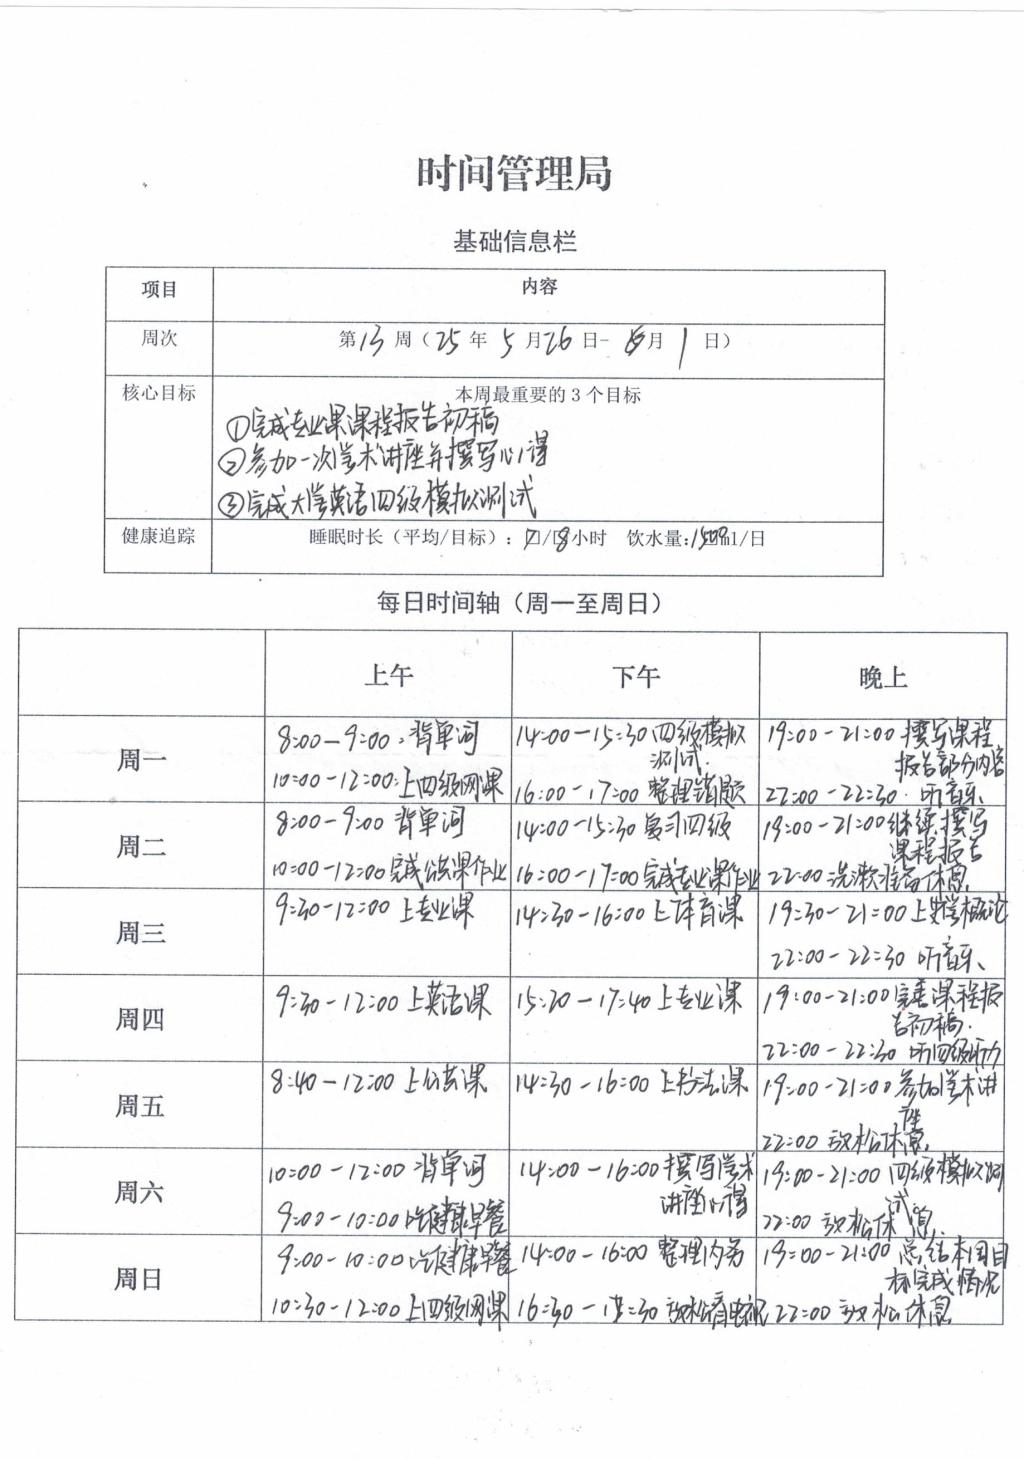 时间管理局
基础信息栏
项目 内容
周次 第13周（25年 5月26日-6月1日）
核心目标 本周最重要的3个目标
①完成专业课课程报告初稿
②参加一次学术讲座并撰写心得
③完成大学英语四级模拟测试
健康追踪 睡眠时长（平均/目标）：7/8小时 饮水量:1500ml/日
每日时间轴（周一至周日）
上午 下午 晚上
周一
8:00-9:00:背单词
10:00-12:00:上四级网课
14:00-15:30 四级模拟
测试.
16:00-17:00 整理错题
19:00-21:00 撰写课程
报告部分内容
22:00-22:30.听音乐
周二
8:00-9:00 背单词
10:00-12:00完成公共课作业
14:00-15:30 复习四级
16:00-17:00完成专业课作业
19:00-21:00继续撰写
课程报告
22:00 洗漱准备休息
周三
9:30-12:00 上专业课
14:30-16:00 上体育课
19:30-21:00 上文学概论
22:00-22:30 听音乐
周四
9:30-12:00 上英语课
15:20-17:40 上专业课
19:00-21:00 完善课程报
告初稿.
22:00-22:30 听四级听力
周五
8:40-12:00 上公共课
14:30-16:00 上书法课
19:00-21:00 参加学术讲
座
22:00 放松休息
周六
10:00-12:00 背单词
9:00-10:00吃健康早餐
14:00-16:00 撰写学术
讲座心得
19:00-21:00 四级模拟测
试.
22:00 放松休息.
周日
9:00-10:00吃健康早餐
10:30-12:00上四级网课
14:00-16:00 整理内务
放松看电视
19:00-21:00 总结本周目
标完成情况
22:00 放松休息